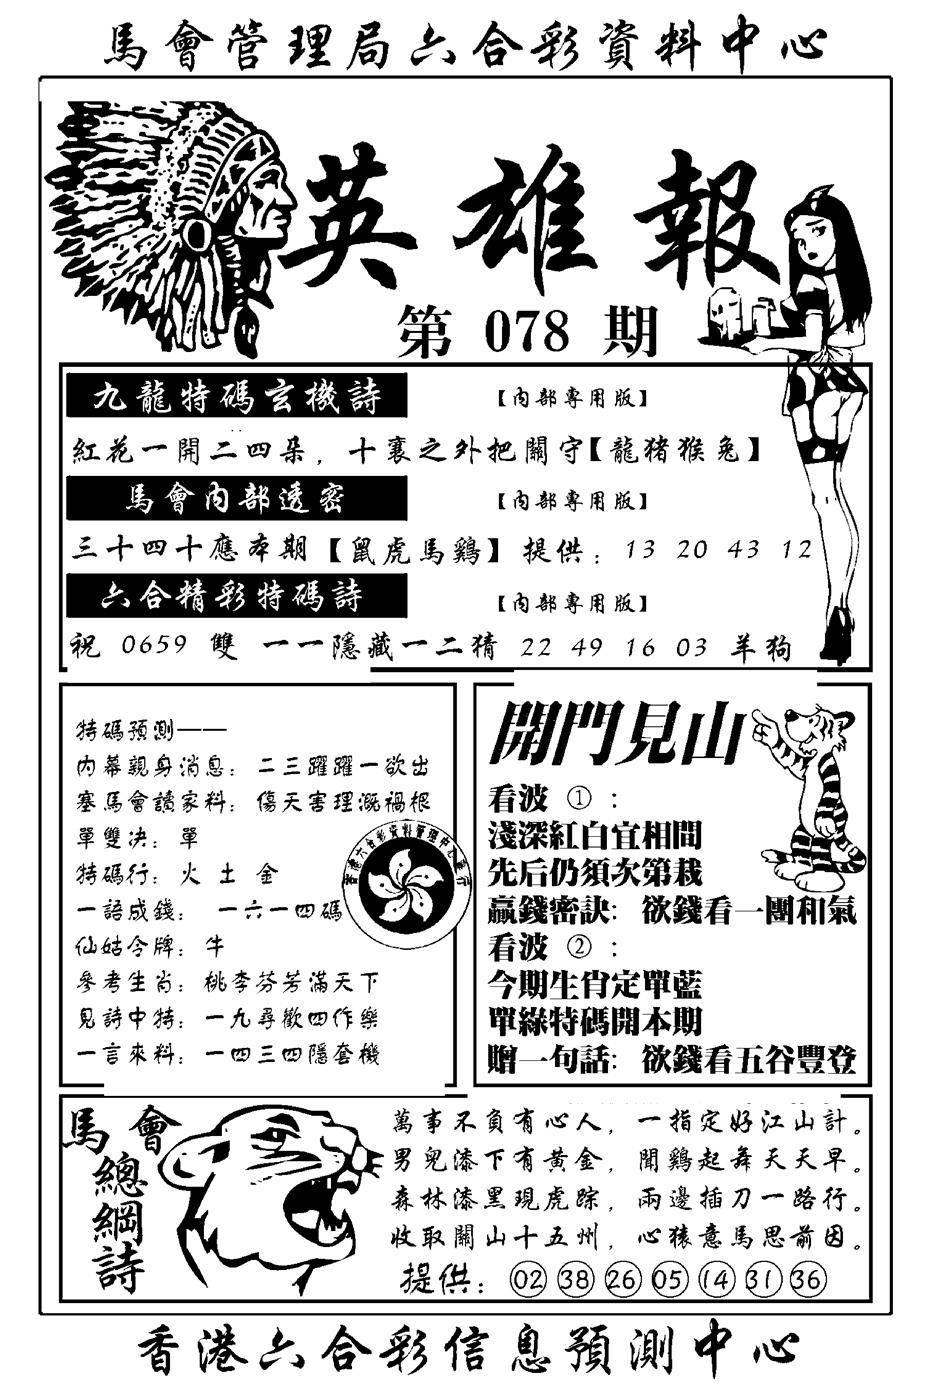 馬會管理局六合彩資料中心
英雄報
第 078 期
九龍特碼玄機詩 【內部專用版】
紅花一開二四朵，十裏之外把關守【龍猪猴兔】
馬會內部透密 【內部專用版】
三十四十應本期【鼠虎馬鷄】提供：13 20 43 12
六合精彩特碼詩 【內部專用版】
祝 0659 雙 一一隱藏一二猜 22 49 16 03 羊狗
特碼預測——
內幕親身消息：二三躍躍一欲出
塞馬會讀家料：傷天害理溉禍根
單雙决：單
特碼行：火 土 金
一語成錢： 一六一四碼
仙姑令牌：牛
參考生肖：桃李芬芳滿天下
見詩中特：一九尋歡四作樂
一言來料：一四三四隱套機
香港六合彩資料管理中心發行
開門見山
看波 ①：
淺深紅白宜相間
先后仍須次第栽
贏錢密訣：欲錢看一團和氣
看波 ②：
今期生肖定單藍
單綠特碼開本期
贈一句話：欲錢看五谷豐登
馬會總綱詩
萬事不負有心人，一指定好江山計。
男兒漆下有黄金，聞鷄起舞天天早。
森林漆黑現虎踪，兩邊插刀一路行。
收取關山十五州，心猿意馬思前因。
提供：02 38 26 05 14 31 36
香港六合彩信息預測中心